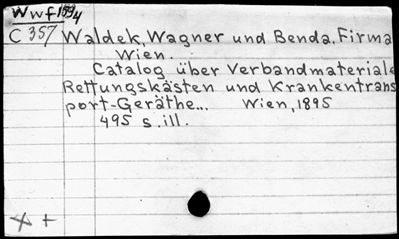 Wwf 1594
C 357 Waldek, Wagner und Benda. Firma
Wien.
Catalog über Verbandmateriale
Rettungskästen und Krankentrans
port-Geräthe... Wien, 1895
495 s. ill.